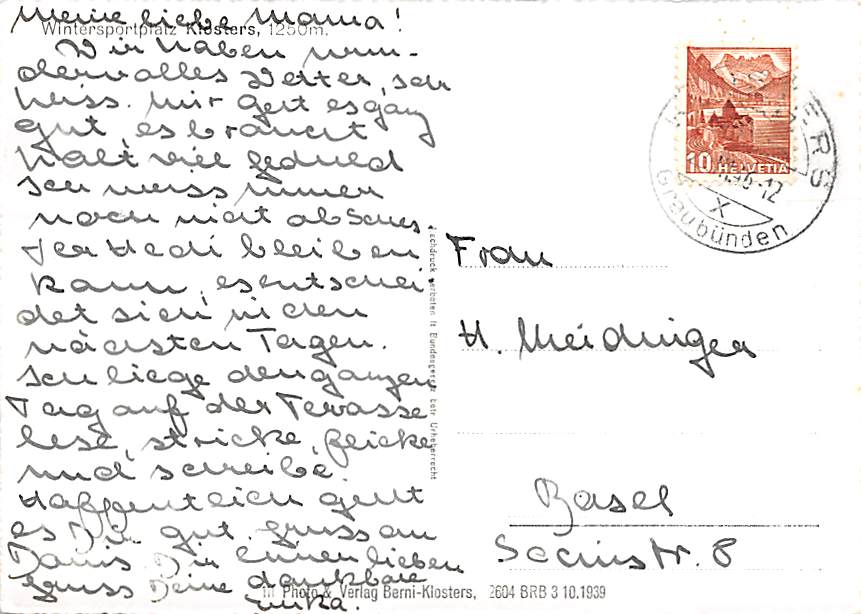 Meine liebe Mama!
Wintersportplatz Klosters, 1250m.
Wir haben wun-
dervolles Wetter, sehr
heiss. mir geht es ganz
gut, es braucht
halt viel geduld
Ich weiss immer
noch nicht ob
Hedi bleiben
kann, es entschei
det sich in den
nächsten Tagen.
Ich liege den ganzen
Tag auf der Terrasse
lese, stricke, flicke
und schreibe.
Hoffentlich geht
es Dir gut. gruss an
Dir einen lieben
gruss Deine dankbare
Frau
H. Meidinger
Basel
Socinstr. 8
10 HELVETIA
Graubünden
X
Nachdruck verboten lt. Bundesgesetz betr. Urheberrecht
Photo & Verlag Berni-Klosters, 2604 BRB 3 10.1939